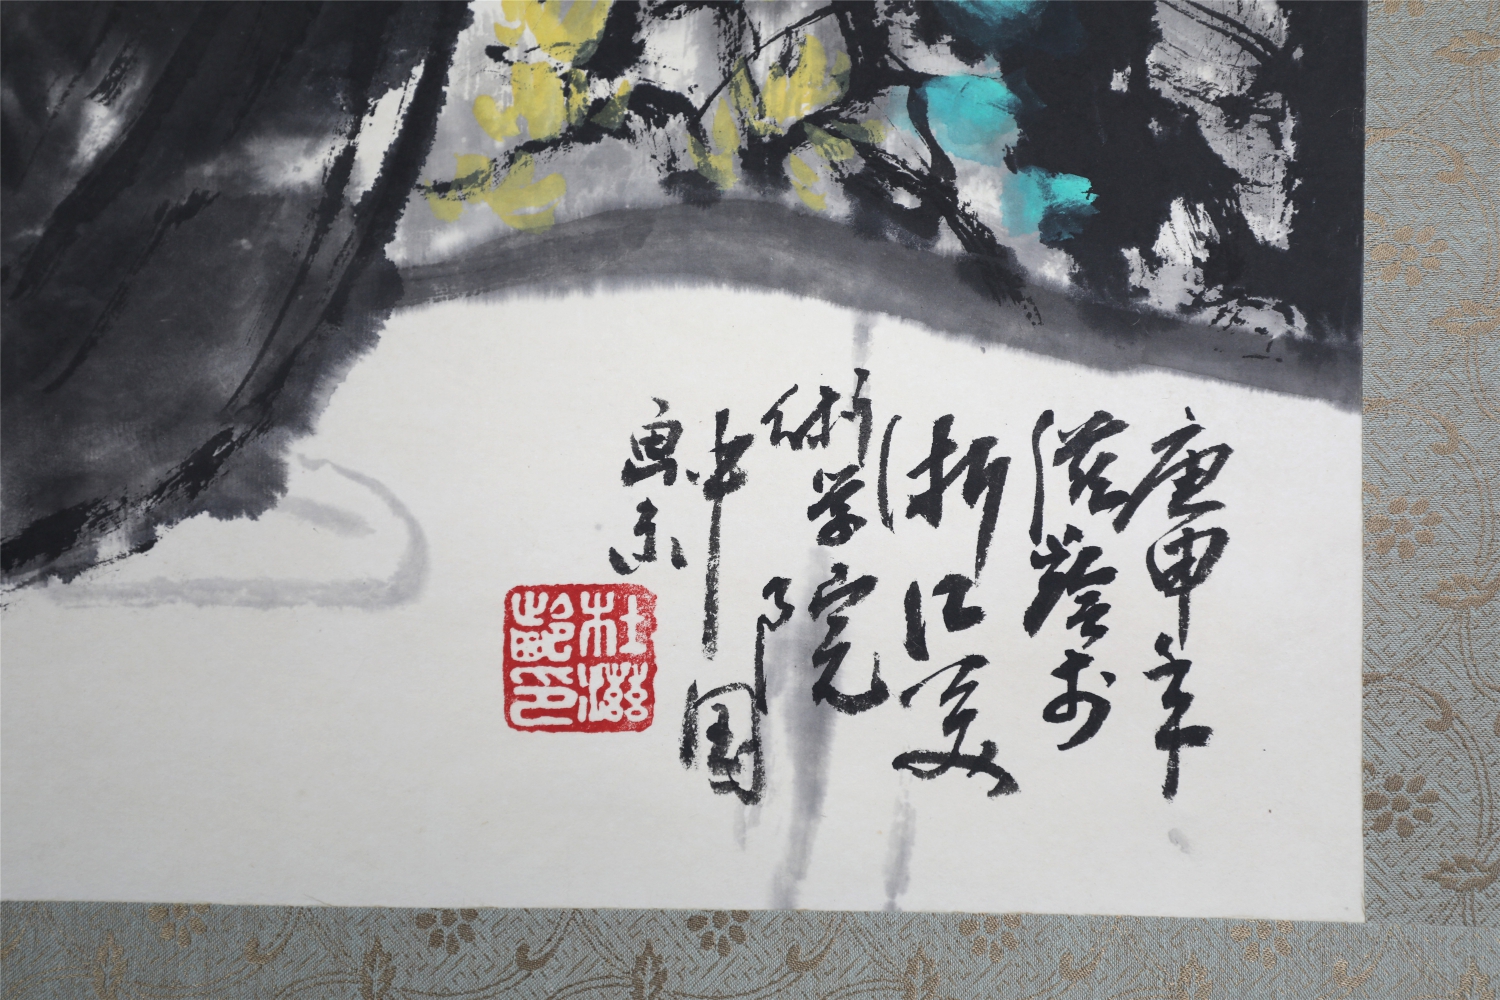 庚申年
滋齡於
浙江美
術学院
中国
画系
杜滋
齡印